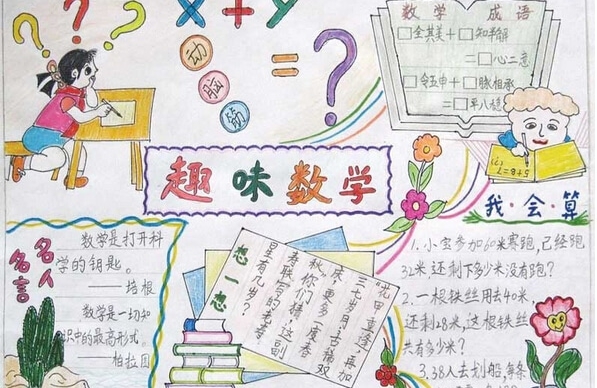 ? ? ?
x+y
=?
动
脑
筋
数学 成语
□全其美+□知半解
=□心二意
□令五申+□脉相承
=□平八稳
5+8=?
趣味数学
我·会·算
名人名言
数学是打开科
学的钥匙。
——培根
数学是一切知
识中的最高形式。
——柏拉图
想一想
花甲重逢,再加
三七岁月;古稀双
庆,更多一度春
秋。你们猜,这副
春联写的老寿
星有几岁?
1.小宝参加60米赛跑,已经跑
32米,还剩下多少米没有跑?
2.一根铁丝用去40米,
还剩28米,这根铁丝
共有多少米?
3.38人去划船,每条